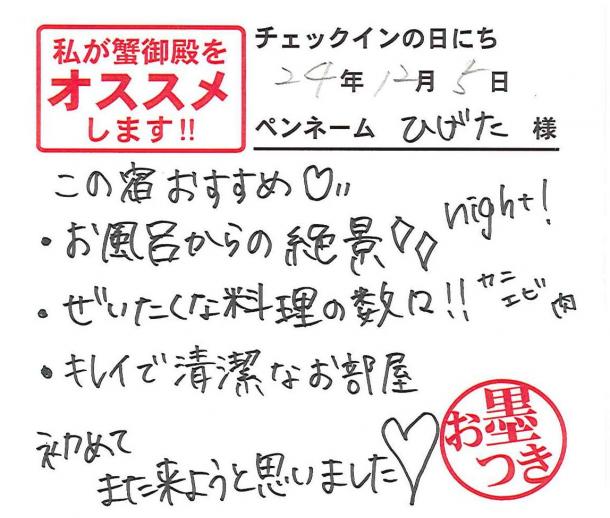 私が蟹御殿を
オススメ
します!!
チェックインの日にち
24年12月5日
ペンネーム ひげた 様
この宿おすすめ♡!!
・お風呂からの絶景 night!
・ぜいたくな料理の数々!! カニ エビ 肉
・キレイで清潔なお部屋
初めて
また来ようと思いました♡
お墨つき